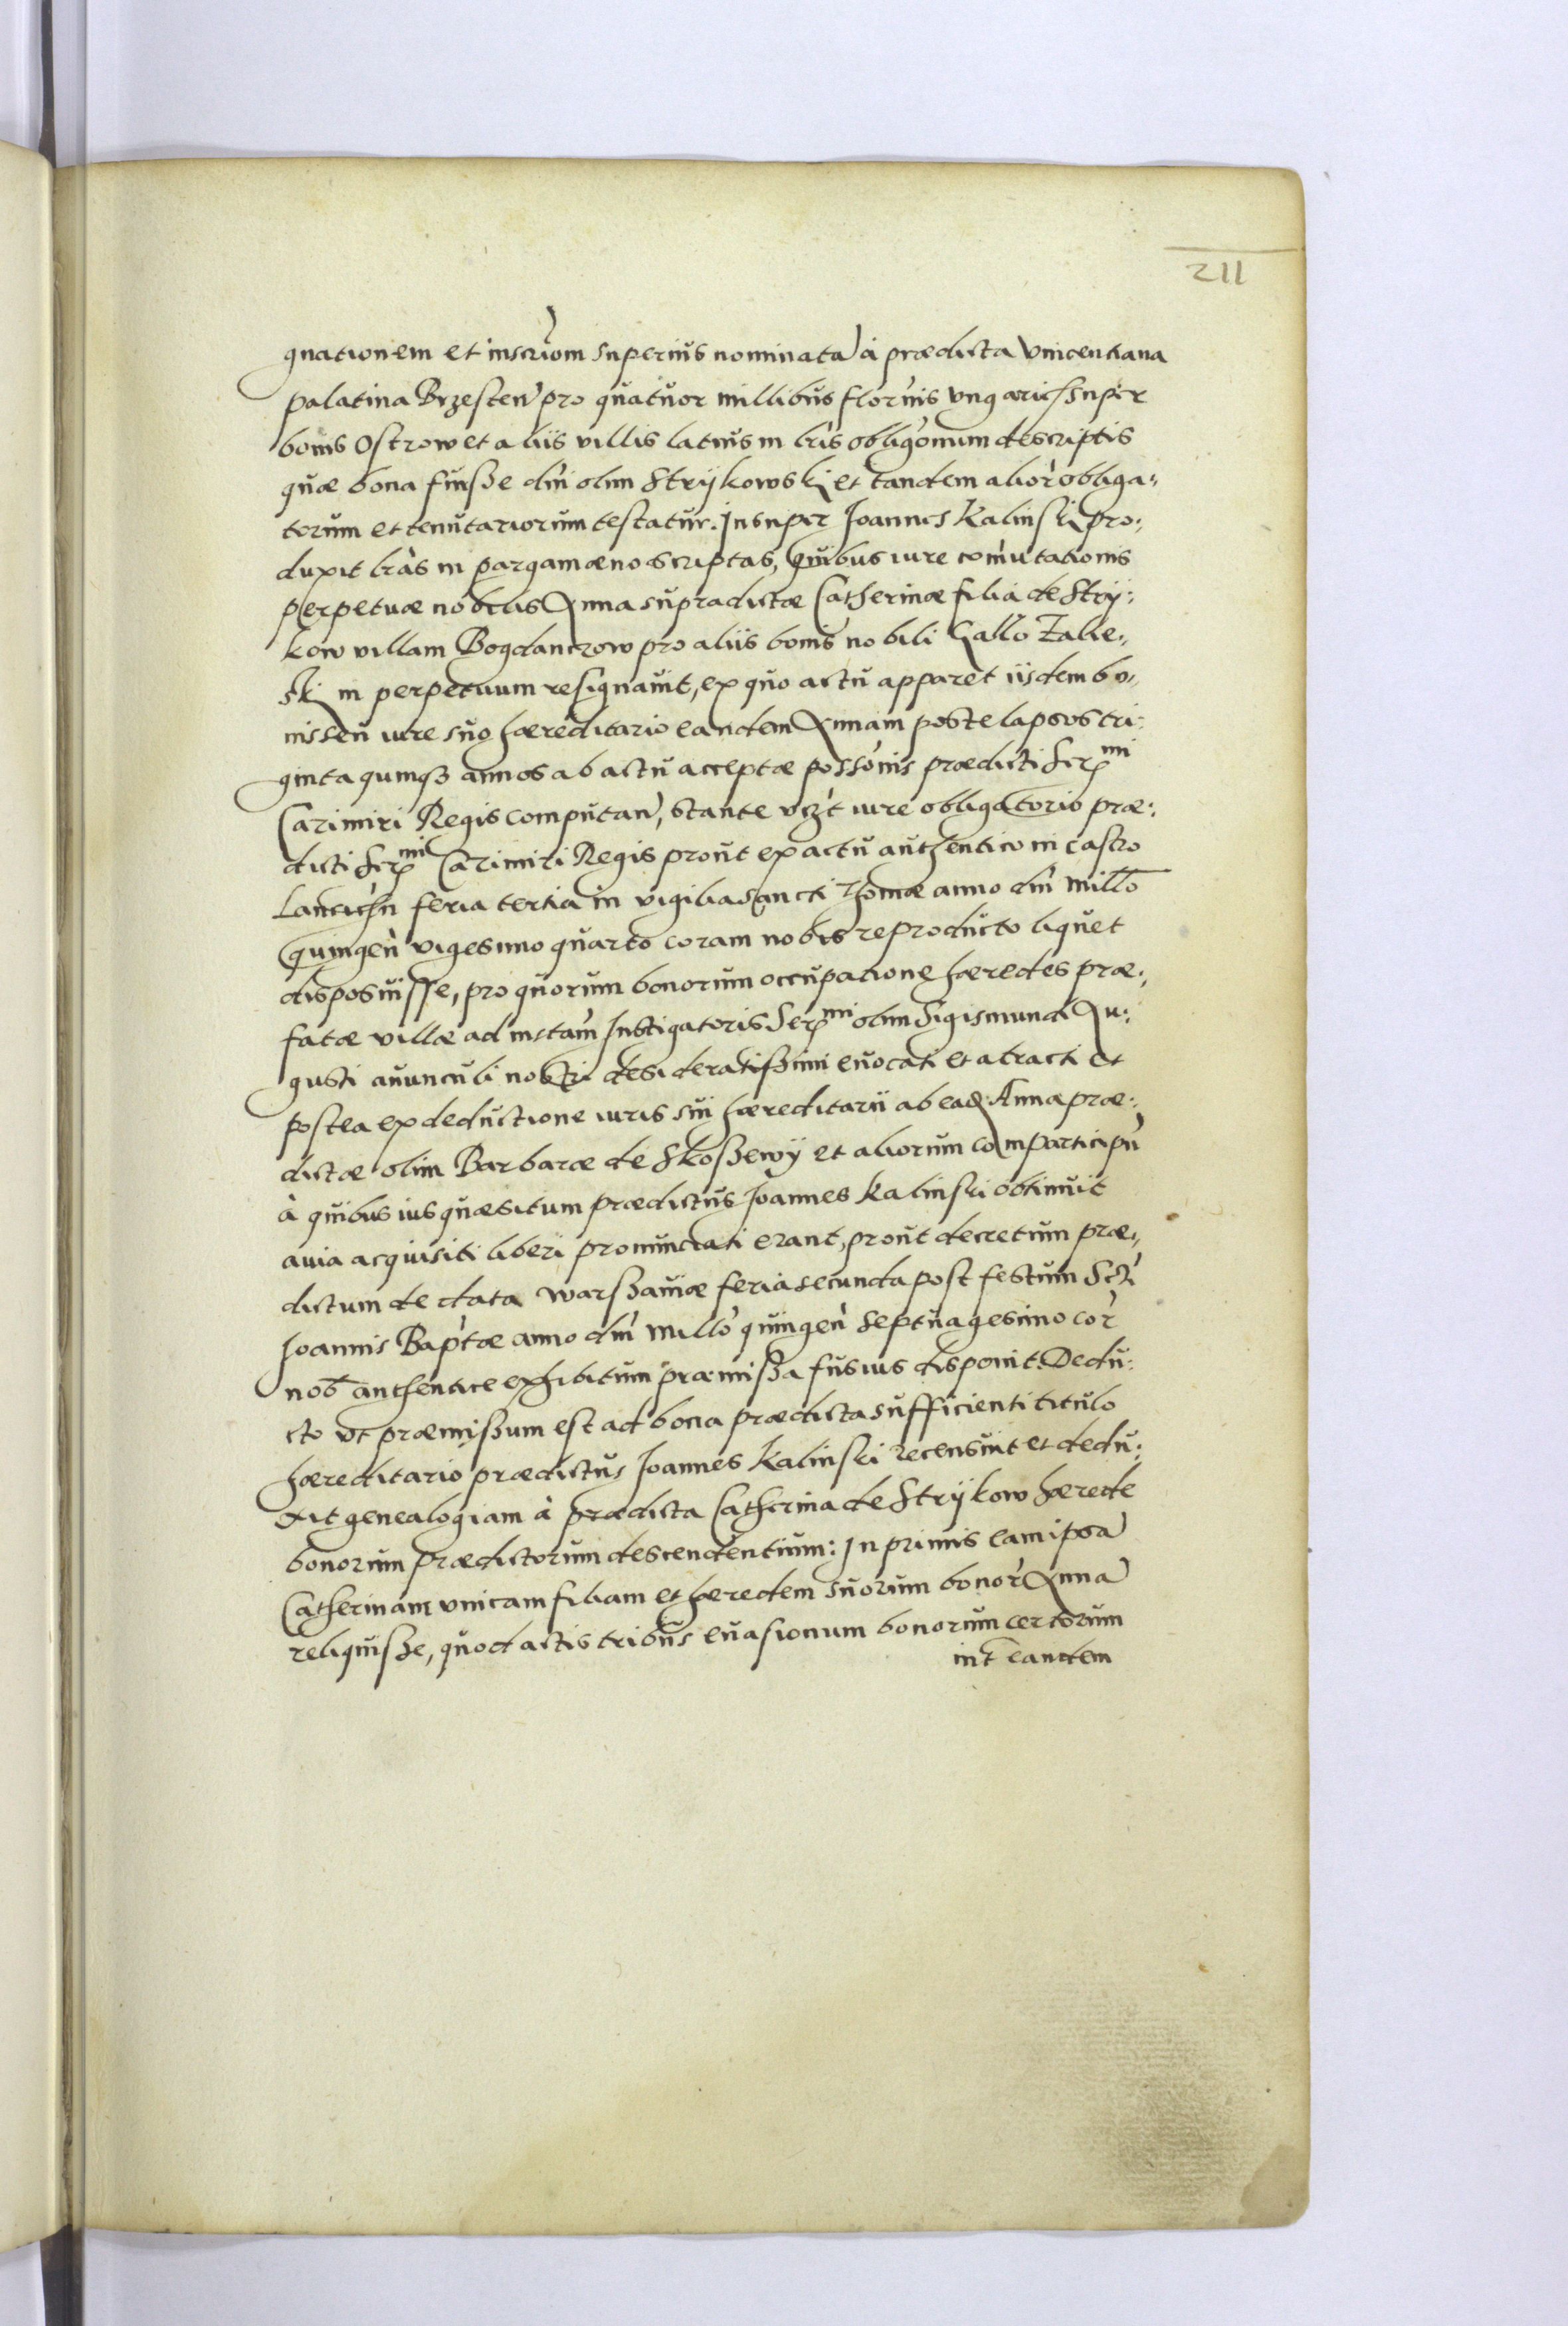 211
gnationem et inscr̃iom superius nominata à prædicta Vincentiana
palatina Brzesten̄ pro quatuor millibus floren̄is Vngaric̃ super
bonis Ostrow et aliis villis latius in lr̃is obligõnum descriptis
quæ bona fuisse dñi olim Strÿkowskj et tandem alior̃ obliga„
torum et tenutariorum testatur. Insuper Joannes Kalinski pro:
duxit lr̃as in pargamæno scriptas, quibus iure com̃utationis
perpetuæ nobilis Anna supradictæ Catherinæ filia de Strÿ:
kow villam Bogdanczow pro aliis bonis nobili Gallo Zalie„
skj in perpetuum resignauit, ex quo actu apparet iisdem bo„
nis seu iure suo hæreditario eandem Annam post elapsos tri:
ginta quinq₃ annos ab actu acceptæ possõnis prædicti Ser^mi
Cazimiri Regis computan̄, stante vcz̃t iure obligatorio præ:
dicti Ser^mi Cazimiri Regis prout ex actu authentico in castro
Lancicñ feria tertia in vigilia Sancti Thomæ anno dñi millõ
quingeñ vigesimo quarto coram nobis reproducto liquet
disposuisse, pro quorum bonorum occupatione hæredes præ„
fatæ villæ ad instañ Instigatoris Ser^mi olim Sigismundi Au:
gusti auunculi nostri desideratissimi euocati et atracti et
postea ex deductione iuris sui hæreditarii ab eadē Anna præ„
dictæ olim Barbaræ de Skoszewÿ et aliorum comparticipũ
à quibus ius quæsitum prædictus Joannes Kalinski obtinuit
auia acquisiti liberi pronunciati erant, prout decretum præ„
dictum de data Warszauiæ feria secunda post festum Scti
Joannis Bap̃tæ anno dñi millõ quingeñ septuagesimo cor̃
nob̃ authentice exhibitum præmissa fusius disponit. Dedu:
cto vt præmissum est ad bona prædicta sufficienti titulo
hæreditario prædictus Joannes Kalinski recensuit et dedu:
xit genealogiam à prædicta Catherina de Strÿkow hærede
bonorum prædictorum descendentium: In primis eam ipsā
Catherinam vnicam filiam et hæredem suorum bonor̃ Annā
reliquisse, quod actis tribus euasionum bonorum certorum
int̃ eandem